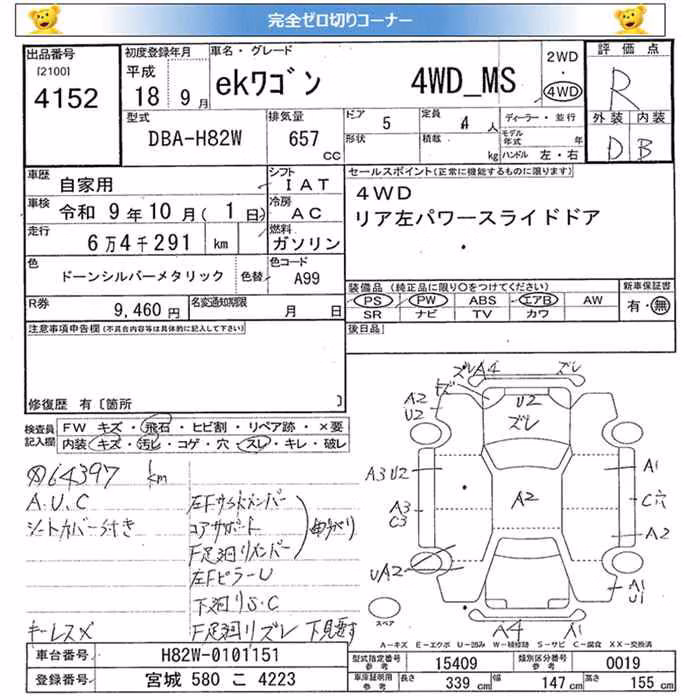 完全ゼロ切りコーナー
出品番号 [2100] 4152
初度登録年月 平成 18 9月
車名・グレード ekワゴン 4WD_MS
2WD・4WD
評価点 R
外装 内装 D B
型式 DBA-H82W
排気量 657 CC
ドア 5 定員 4 人
形状 積載 kg
ディーラー・並行
モデル年式 年
ハンドル 左・右
車歴 自家用
シフト IAT
車検 令和 9年 10月 (1日)
冷房 AC
走行 6万4千291 km
燃料 ガソリン
色 ドーンシルバーメタリック 色替
色コード A99
R券 9,460円
名変通知期限 月 日
セールスポイント(正常に機能するものに限ります)
4WD
リア左パワースライドドア
装備品 (純正品に限り○をつけてください)
PS PW ABS エアB AW
SR ナビ TV カワ
新車保証書 有・無
後日品
注意事項申告欄(不具合内容等は具体的に記入して下さい)
修復歴 有〔箇所 〕
検査員記入欄
FW キズ・飛石・ヒビ割・リペア跡・×要
内装・キズ・汚レ・コゲ・穴・スレ・キレ・破レ
64397 km
A.U.C
シートカバー付き
キーレス×
左Fサイドメンバー
コアサポート
F足廻りメンバー
曲がり
左FピラーU
下廻りS.C
F足廻りズレ 下見要す
ズレ A4 ズレ
キズ
A2
U2
U2
ズレ
A3 U2
A3
C3
A2
A1
C穴
A2
UA2
A1
U1
A4 A1
スペア
A－キズ E－エクボ U－凹み W－補修跡 S－サビ C－腐食 XX－交換済
車台番号 H82W-0101151
登録番号 宮城 580 こ 4223
型式指定番号 参考 15409
類別区分番号 参考 0019
車庫証明用 参考 長さ 339 cm 幅 147 cm 高さ 155 cm